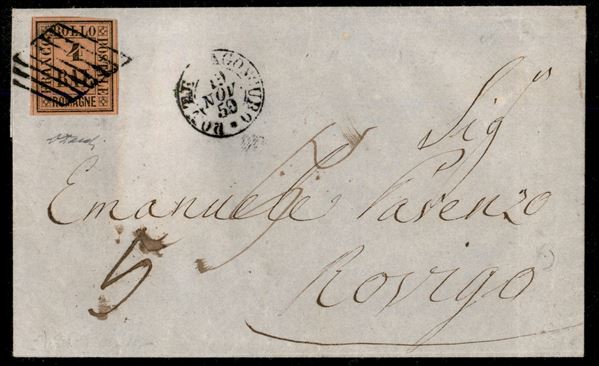 FRANCO
BOLLO
POSTALE
4
BAJ
ROMAGNE
19
NOV
59
Sig
Emanuele Parenzo
Rovigo
5